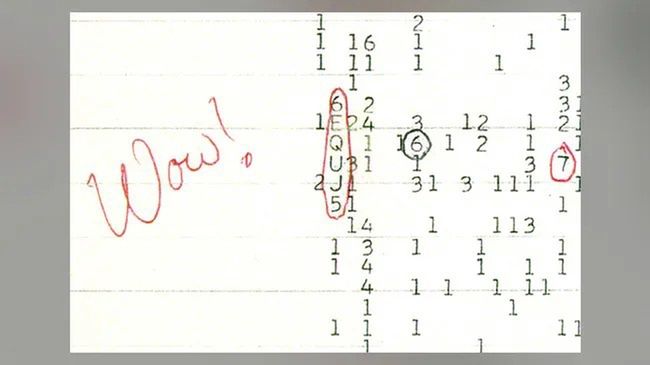 1 2 1
1 16 1 1
1 11 1 1
1 3
6 2 31
1E24 3 12 1 21
Q 1 16 1 2 1 11
Wow!
U31 1 3 7
2J1 31 3 111 1
51 1
14 1 113
1 3 1 1 1
1 4 1 1 1
4 1 1 1 11
1 1
1 1 1 11
1 1